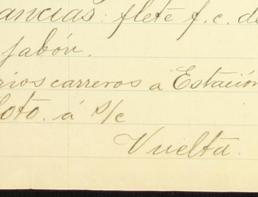 ancias: flete f.c. de
jabón.
rios carreros a Estación
loto. á s/c
Vuelta.